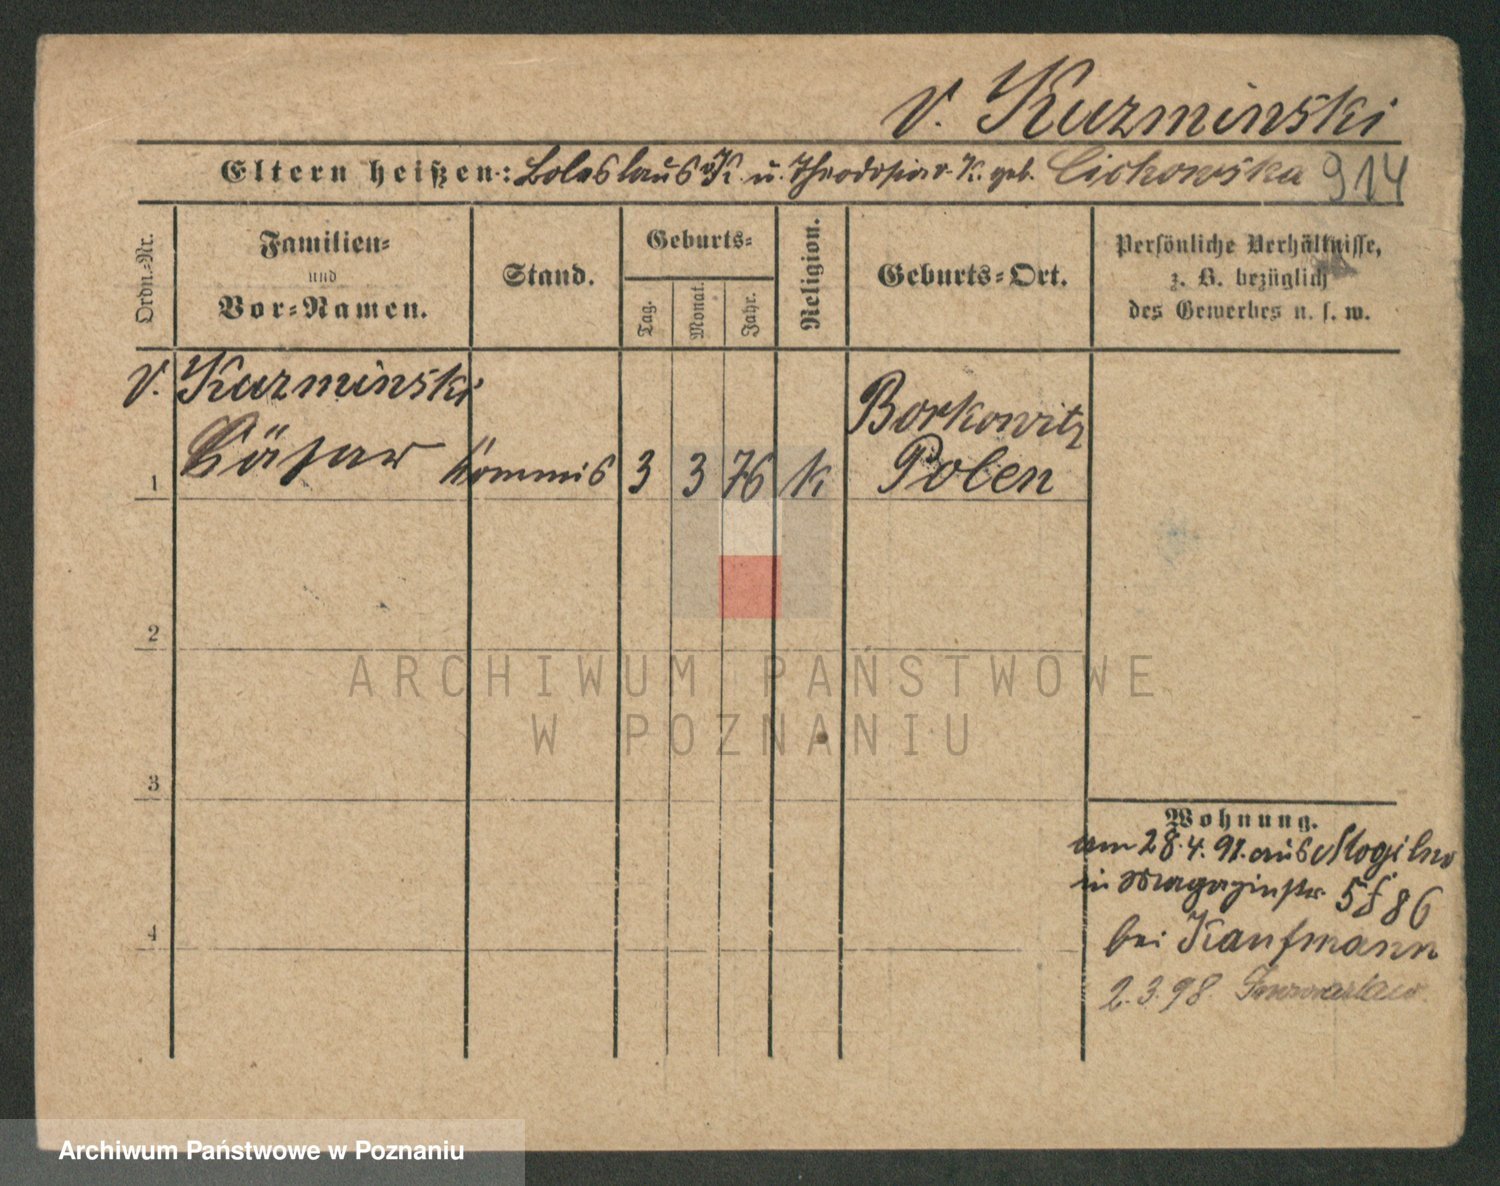 v. Kuzminski
Eltern heißen: Boleslaus v K. u. Theodosia v. K. geb. Cichowska 914
Ordn.=Nr.
Familien=
und
Vor=Namen.
Stand.
Geburts=
Tag.
Monat.
Jahr.
Religion.
Geburts=Ort.
Persönliche Verhältnisse,
z. B. bezüglich
des Gewerbes u. s. w.
v. Kuzminski
1 Cäsar Kommis 3 3 76 k Borkowitz
Polen
2
3
4
ARCHIWUM PAŃSTWOWE
W POZNANIU
Wohnung.
28.4.91. aus Mogilno
in Magazinstr. 5 86
bei Kaufmann
2.3.98. Inowrazlaw.
Archiwum Państwowe w Poznaniu